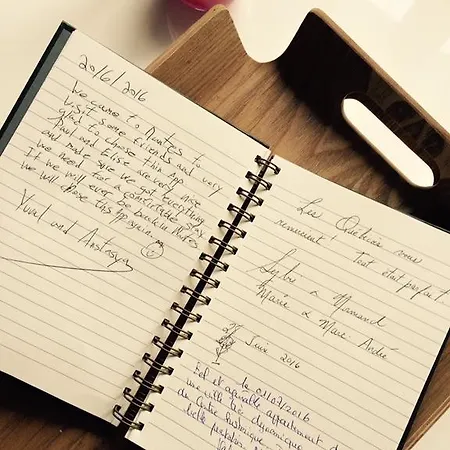 20/6/2016
We came to Nantes to
visit some friends and very
glad to choose this App.
Paul and Elise are very nice
and made sure we got everything
we need for a comfortable stay.
If we will ever be back in Nantes
we will chose this App again.
Yuval and
Les Québécois vous
remercient! Tout était parfait
Sylvie & Normand
Marie & Marc André
27 Juin 2016
le 01/07/2016
bel et agréable appartement d
une ville très dynamique
du Centre historique
belle prestation